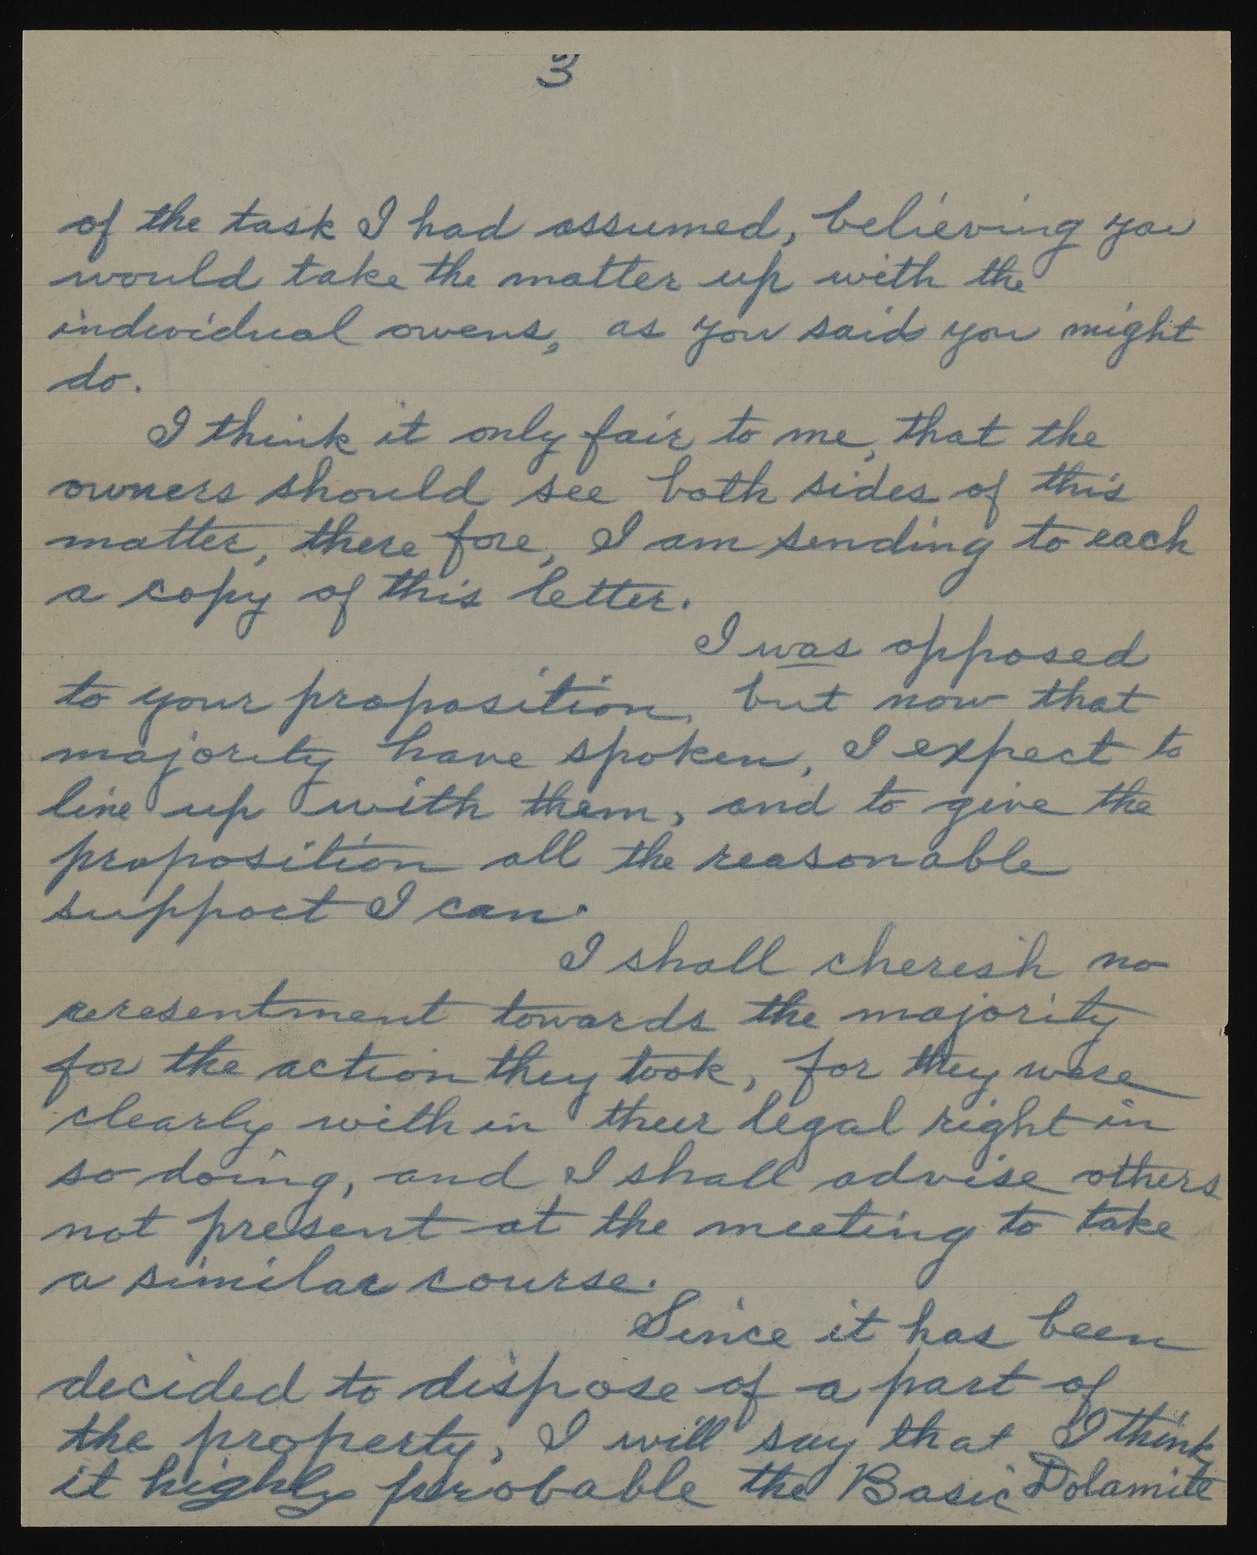 3
of the task I had assumed, believing you
would take the matter up with the
individual owens, as you said you might
do.
I think it only fair to me, that the
owners should see both sides of this
matter, there fore, I am sending to each
a copy of this letter.
I was opposed
to your proposition, but now that
majority have spoken, I expect to
line up with them, and to give the
proposition all the reasonable
support I can.
I shall cherish no
reresentment towards the majority
for the action they took, for they were
clearly with in their legal right in
so doing, and I shall advise others
not present at the meeting to take
a similar course.
Since it has been
decided to dispose of a part of
the property, I will say that I think
it highly probable the Basic Dolamite